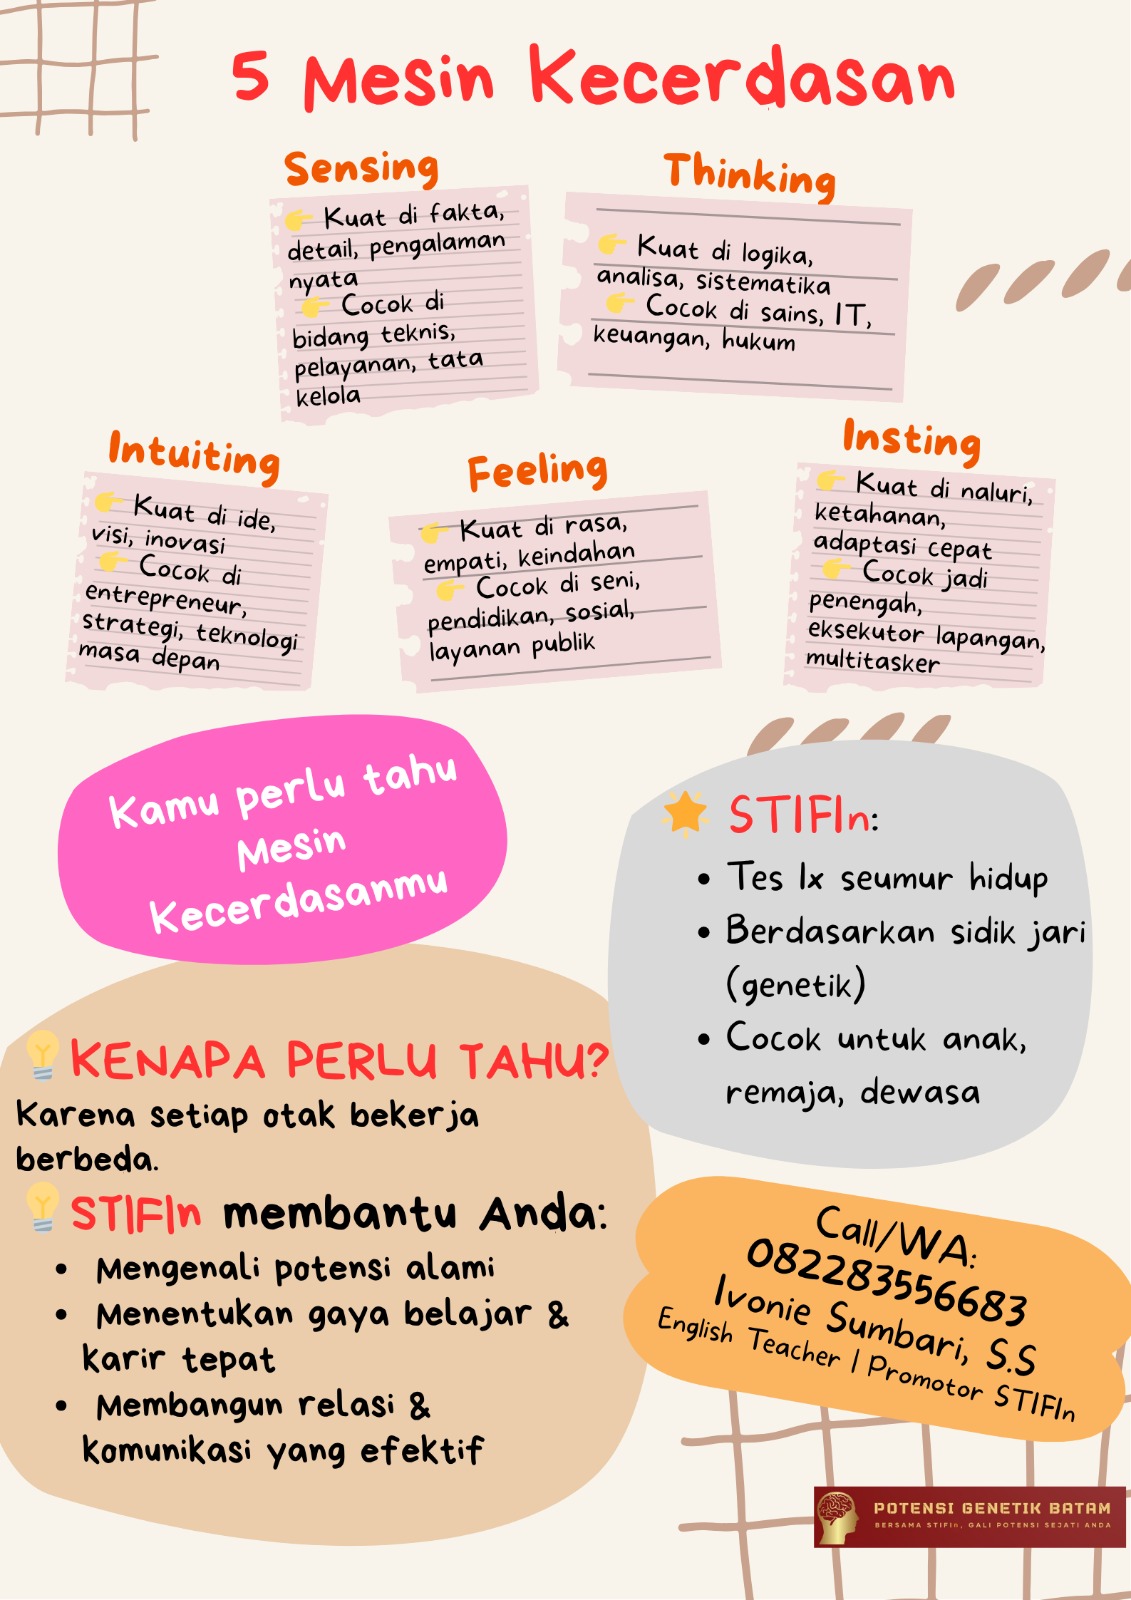 5 Mesin Kecerdasan
Sensing
👉 Kuat di fakta,
detail, pengalaman
nyata
👉 Cocok di
bidang teknis,
pelayanan, tata
kelola
Thinking
👉 Kuat di logika,
analisa, sistematika
👉 Cocok di sains, IT,
keuangan, hukum
Intuiting
👉 Kuat di ide,
visi, inovasi
👉 Cocok di
entrepreneur,
strategi, teknologi
masa depan
Feeling
👉 Kuat di rasa,
empati, keindahan
👉 Cocok di seni,
pendidikan, sosial,
layanan publik
Insting
👉 Kuat di naluri,
ketahanan,
adaptasi cepat
👉 Cocok jadi
penengah,
eksekutor lapangan,
multitasker
Kamu perlu tahu
Mesin
Kecerdasanmu
🌟 STIFIn:
• Tes 1x seumur hidup
• Berdasarkan sidik jari
(genetik)
• Cocok untuk anak,
remaja, dewasa
💡KENAPA PERLU TAHU?
Karena setiap otak bekerja
berbeda.
💡STIFIn membantu Anda:
• Mengenali potensi alami
• Menentukan gaya belajar &
karir tepat
• Membangun relasi &
komunikasi yang efektif
Call/WA:
082283556683
Ivonie Sumbari, S.S
English Teacher | Promotor STIFIn
POTENSI GENETIK BATAM
BERSAMA STIFIn, GALI POTENSI SEJATI ANDA